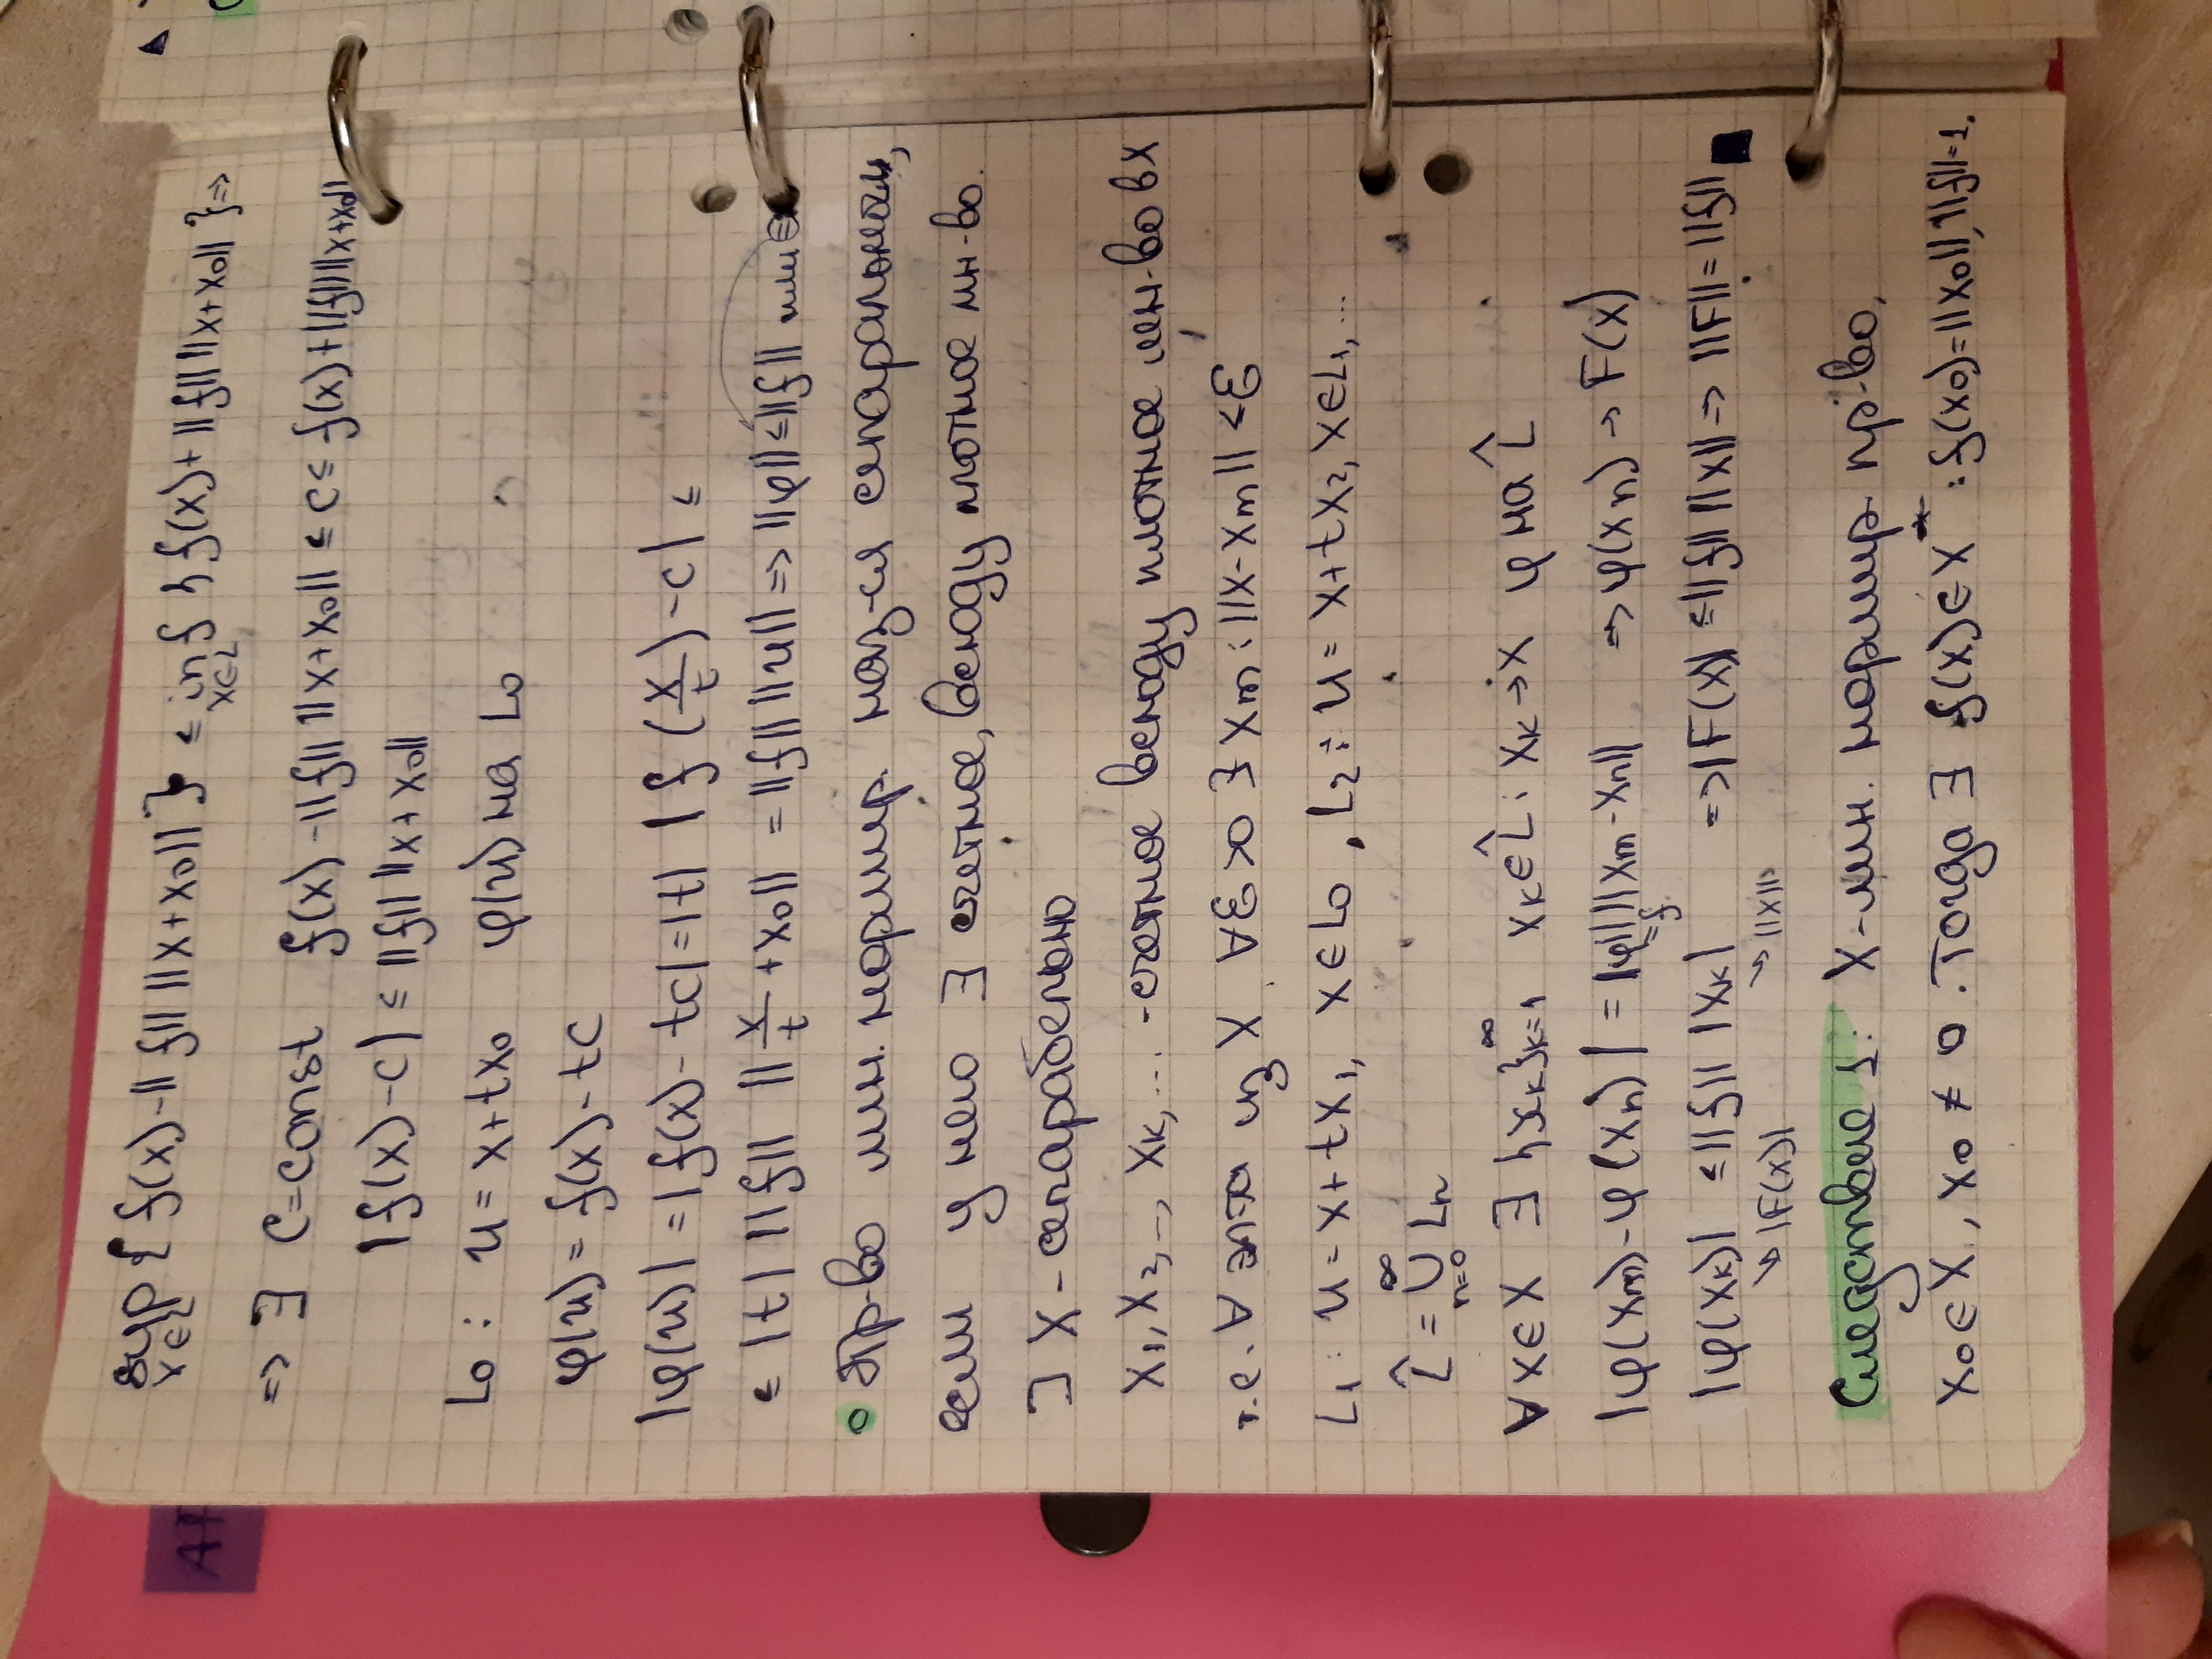 sup { f(x) - ||f|| ||x+x₀|| } ≤ inf { f(x) + ||f|| ||x+x₀|| } =>
x∈L x∈L
=> ∃ C=const f(x) - ||f|| ||x+x₀|| ≤ C ≤ f(x) + ||f|| ||x+x₀||
|f(x) - C| ≤ ||f|| ||x+x₀||
L₀ : u = x + tx₀ φ(u) на L₀
φ(u) = f(x) - tC
|φ(u)| = |f(x) - tC| = |t| |f(x/t) - C| ≤
≤ |t| ||f|| ||x/t + x₀|| = ||f|| ||u|| => ||φ|| ≤ ||f|| или ⊜
o Пр-во лин. нормир. наз-ся сепарабельным,
если у него ∃ счетное, всюду плотное мн-во.
] X - сепарабельно
x₁, x₂, ..., xₖ, ... - счетное всюду плотное мн-во в X
т.е. ∀ эл-та из X ∀ε>0 ∃ xₘ: ||x - xₘ|| < ε
L₁ : u = x + tx₁, x ∈ L₀, L₂: u = x + tx₂, x ∈ L₁, ...
L̂ = ∪ Lₙ
∞
n=0
∀x∈X ∃ {xₖ}∞ₖ₌₁ xₖ ∈ L̂ : xₖ → x φ на L̂
|φ(xₘ) - φ(xₙ)| = |φ| ||xₘ - xₙ|| => φ(xₙ) → F(x)
= f
|φ(xₖ)| ≤ ||f|| |xₖ| => |F(x)| ≤ ||f|| ||x|| => ||F|| = ||f|| ■
→ |F(x)| → ||x||
Следствие 1: X - лин. нормир. пр-во,
x₀∈X, x₀ ≠ 0. Тогда ∃ f(x) ∈ X* : f(x₀) = ||x₀||, ||f|| = 1.